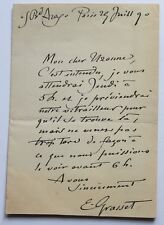 5 Bd Arago Paris 29 Juill 90
Mon cher Uzanne,
C'est entendu, je vous
attendrai Jeudi à
5h. et je préviendrai
notre travailleur pour
qu'il se trouve là,
mais ne venez pas
trop tard de façon à
ce que nous puissions
le voir avant 6h.
A vous
Sincèrement
E. Grasset